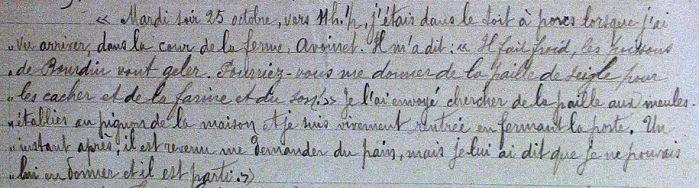 « Mardi soir 25 octobre, vers 11h.½, j'étais dans le toit à porcs lorsque j'ai
" vu arriver, dans la cour de la ferme, Avoinet. Il m'a dit: « Il fait froid, les
" de Bourdin vont geler. Pourriez-vous me donner de la paille de seigle pour
" les cacher et de la farine et du son?» Je l'ai envoyé chercher de la paille aux meules.
au pignon de la maison et je suis vivement rentrée en fermant la porte. Un
" instant après, il est revenu me demander du pain, mais je lui ai dit que je ne pouvais
" lui en donner et il est parti.»